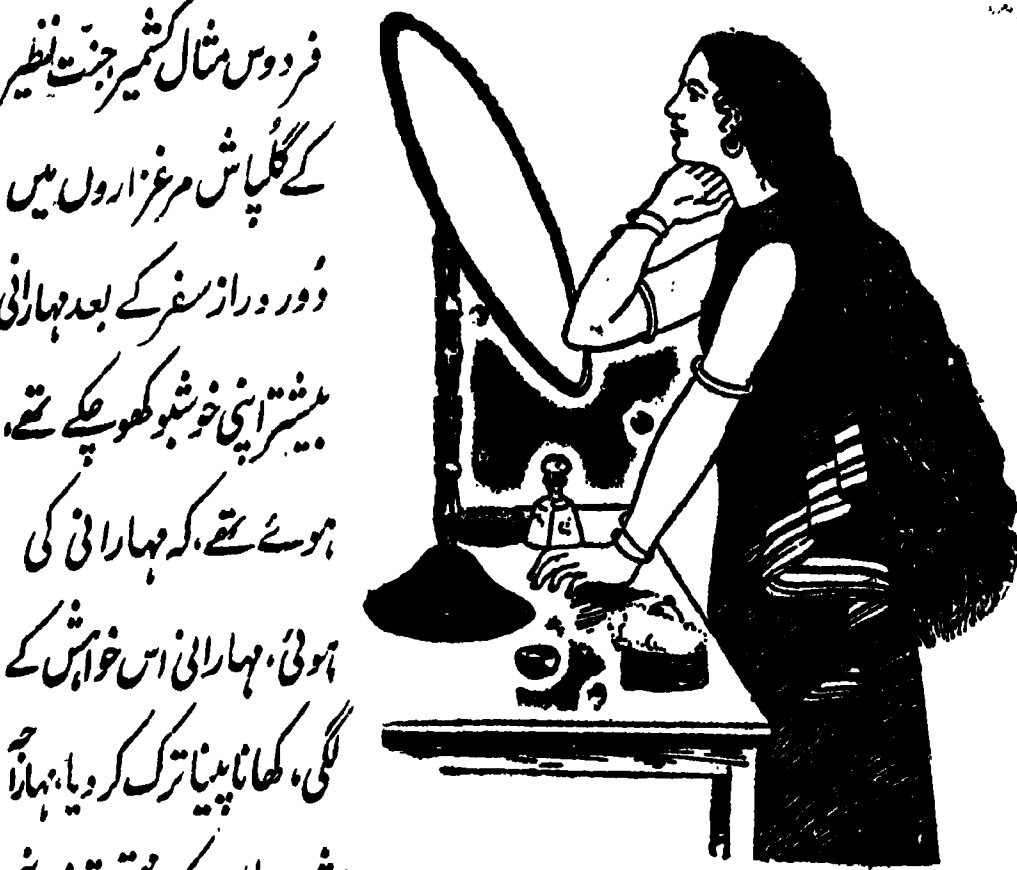 فردوس مثال کشمیر جنّت نظیر
کے گُلپاش مرغزاروں میں
دُور دراز سفر کے بعد مہارانی
بیشتر اپنی خوشبو کھو چکے تھے،
ہوئے تھے، کہ مہارانی کی
ہوئی، مہارانی اس خواہش کے
لگی، کھانا پینا ترک کر دیا، مہاراجہ